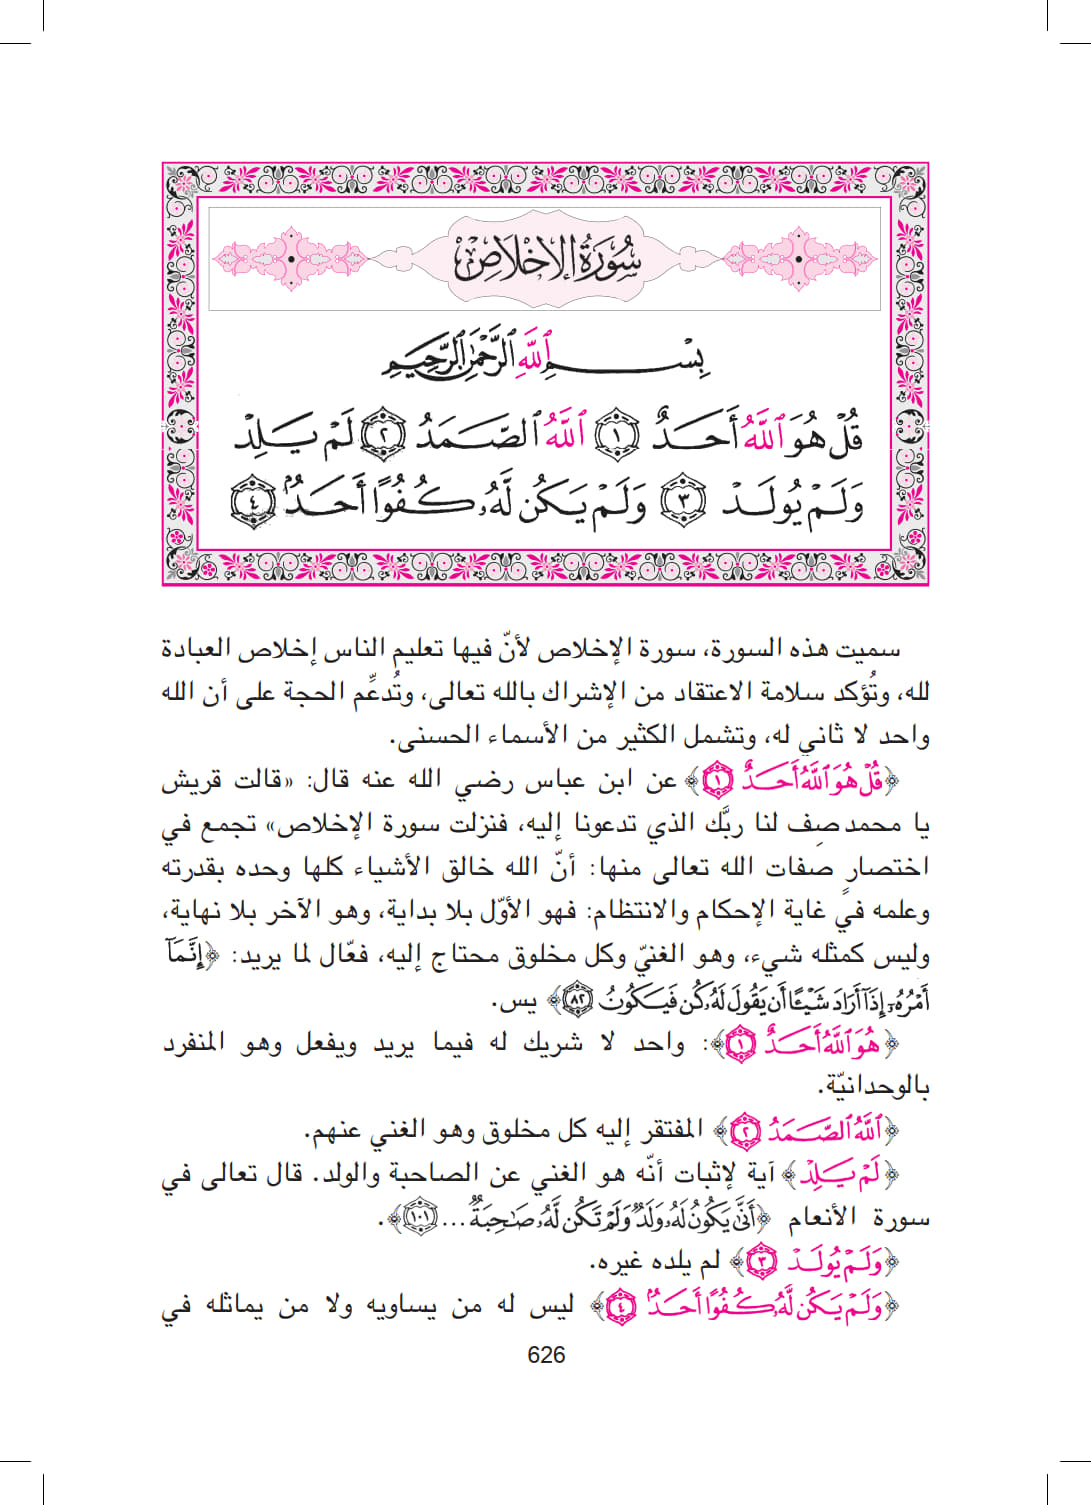 سُورَةُ الإِخْلَاصِ
بِسْمِ ٱللَّهِ ٱلرَّحْمَٰنِ ٱلرَّحِيمِ
قُلْ هُوَ ٱللَّهُ أَحَدٌ ١ ٱللَّهُ ٱلصَّمَدُ ٢ لَمْ يَلِدْ
وَلَمْ يُولَدْ ٣ وَلَمْ يَكُن لَّهُۥ كُفُوًا أَحَدٌۢ ٤
سميت هذه السورة، سورة الإخلاص لأنّ فيها تعليم الناس إخلاص العبادة
لله، وتُؤكد سلامة الاعتقاد من الإشراك بالله تعالى، وتُدعِّم الحجة على أن الله
واحد لا ثاني له، وتشمل الكثير من الأسماء الحسنى.
﴿قُلْ هُوَ ٱللَّهُ أَحَدٌ ١﴾ عن ابن عباس رضي الله عنه قال: «قالت قريش
يا محمد صِف لنا ربَّك الذي تدعونا إليه، فنزلت سورة الإخلاص» تجمع في
اختصارٍ صفات الله تعالى منها: أنّ الله خالق الأشياء كلها وحده بقدرته
وعلمه في غاية الإحكام والانتظام: فهو الأوّل بلا بداية، وهو الآخر بلا نهاية،
وليس كمثله شيء، وهو الغنيّ وكل مخلوق محتاج إليه، فعّال لما يريد: ﴿إِنَّمَآ
أَمْرُهُۥٓ إِذَآ أَرَادَ شَيْـًٔا أَن يَقُولَ لَهُۥ كُن فَيَكُونُ ٨٢﴾ يس.
﴿هُوَ ٱللَّهُ أَحَدٌ ١﴾: واحد لا شريك له فيما يريد ويفعل وهو المنفرد
بالوحدانيّة.
﴿ٱللَّهُ ٱلصَّمَدُ ٢﴾ المفتقر إليه كل مخلوق وهو الغني عنهم.
﴿لَمْ يَلِدْ﴾ آية لإثبات أنّه هو الغني عن الصاحبة والولد. قال تعالى في
سورة الأنعام ﴿أَنَّىٰ يَكُونُ لَهُۥ وَلَدٌ وَلَمْ تَكُن لَّهُۥ صَٰحِبَةٌ... ١٠١﴾.
﴿وَلَمْ يُولَدْ ٣﴾ لم يلده غيره.
﴿وَلَمْ يَكُن لَّهُۥ كُفُوًا أَحَدٌۢ ٤﴾ ليس له من يساويه ولا من يماثله في
626